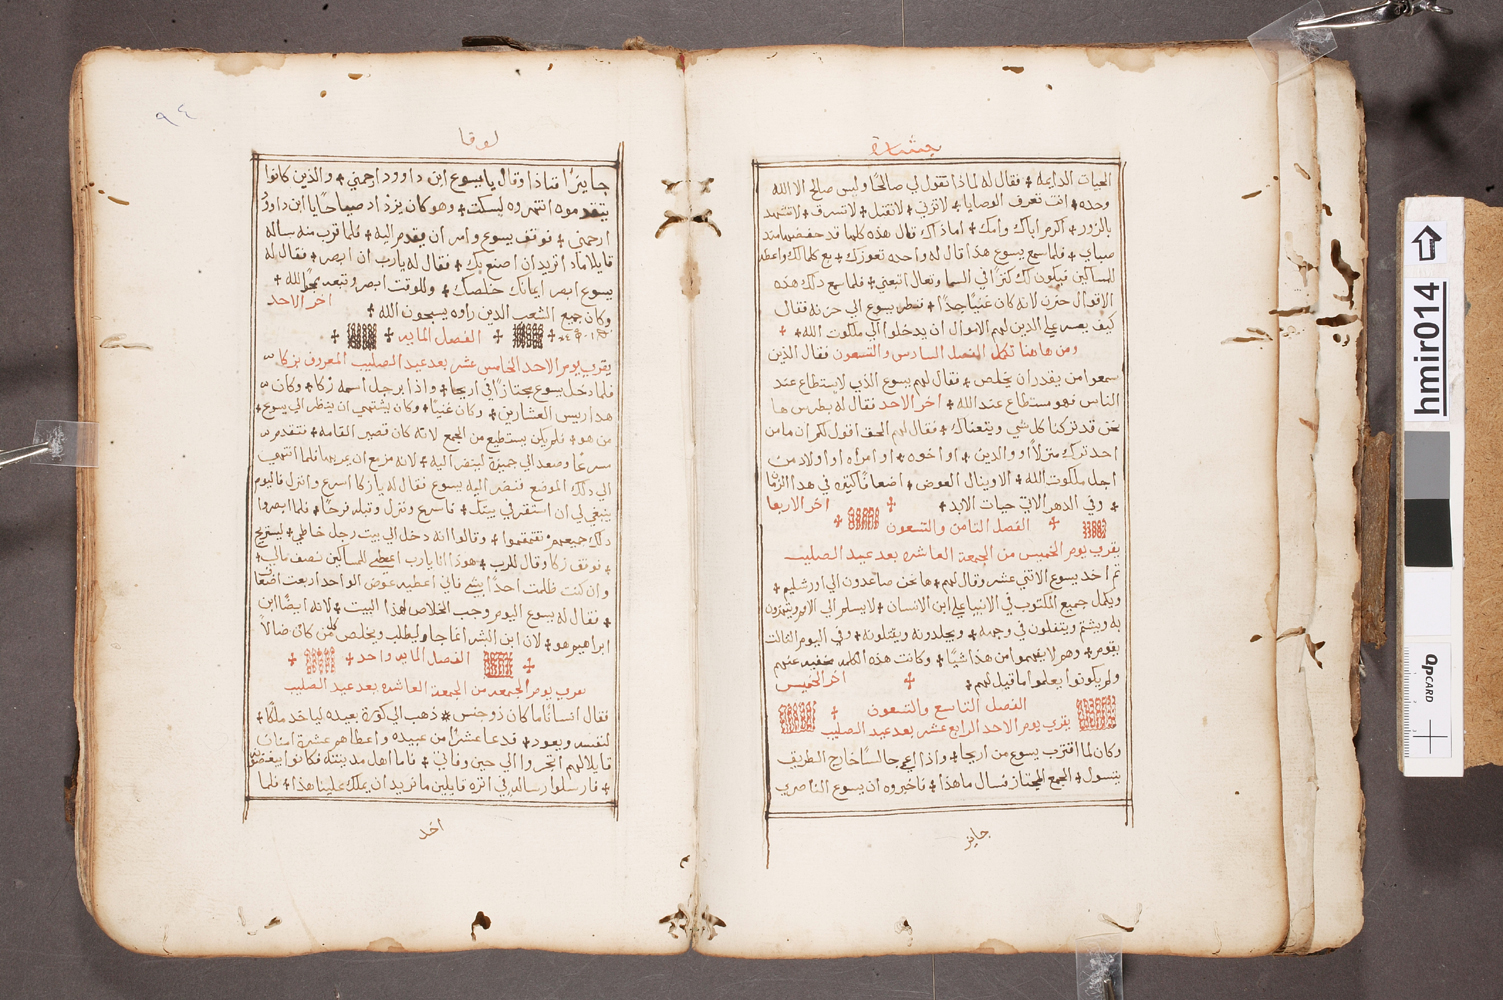 بشارة
الحيات الدايمه ✢ فقال له لماذا تقول لي صالحًا وليس صالح الا الله
وحده ✢ انت تعرف الوصايا ✢ لاتزني ✢ لاتقتل ✢ لاتسرق ✢ لاتشهد
بالزور ✢ اكرم اباك وامك ✢ اما ذاك قال هذه كلها قد حفضها منذ
صباي ✢ فلما سمع يسوع هذا قال له واحده تعوزك ✢ بع كلمالك واعطه
للمساكين فيكون لك كنزًا في السما وتعال اتبعني ✢ فلما سمع ذلك هذه
الاقوال حزن لانه كان غنيًا جدًا ✢ فنظر يسوع الي حزنه فقال
كيف يعسر علي الذين لهم الاموال ان يدخلوا الي ملكوت الله ✢
ومن هاهنا تكمل الفصل السادس والتسعون فقال الذين
سمعوا من يقدر ان يخلص ✢ فقال لهم يسوع الذي لايستطاع عند
الناس فهو مستطاع عند الله ✢ اخر الاحد فقال له بطرس ها
نحن قد تركنا كل شي وتبعناك ✢ فقال لهم الحق اقول لكم ان ما من
احد ترك منزلًا او والدين ✢ او اخوه ✢ او امراه او اولاد من
اجل ملكوت الله ✢ الا وينال العوض ✢ اضعافًا كثيره في هدا الزمان
✢ وفي الدهر الاتي حيات الابد ✢ اخر الاربعا
✢ الفصل الثامن والتسعون ✢
يقرب يوم الخميس من الجمعة العاشره بعد عيد الصليب
ثم اخد يسوع الاثني عشر وقال لهم ✢ ها نحن صاعدون الي اورشليم ✢
ويكمل جميع المكتوب في الانبيا علي ابن الانسان ✢ لانه يسلم الي الامم ويتهزون
به ويشتم ويتفلون في وجهه ✢ ويجلدونه ويقتلونه ✢ وفي اليوم الثالث
يقوم ✢ وهم لا يفهموا من هذا شيًا ✢ وكانت هذه الكلمه مخفيه عنهم
ولم يكونوا يعلموا ما قيل لهم ✢ اخر الخميس
الفصل التاسع والتسعون ✢
يقري يوم الاحد الرابع عشر بعد عيد الصليب
وكان لما اقترب يسوع من اريحا ✢ واذا اعمي جالسًا خارج الطريق
يتسول ✢ الجمع المجتاز فسال ماهذا ✢ فاخبروه ان يسوع الناصري
جايز
٩٤
لوقا
جايزًا فناذا وقال يا يسوع ابن داوود ارحمني ✢ والذين كانوا
يتقدموه انتهروه ليسكت ✢ وهو كان يزداد صياحًا يا ابن داوود
ارحمني ✢ فوقف يسوع وامر ان يقدم اليه ✢ فلما قرب منه ساله
قايلا ماذا تريد ان اصنع بك ✢ فقال له يارب ان ابصر ✢ فقال له
يسوع ابصر ايمانك خلصك ✢ وللوقت ابصر وتبعه ممجدًا الله ✢
وكان جميع الشعب الدين راوه يسبحون الله ✢ اخر الاحد
✢ الفصل المايه ✢
يقري يوم الاحد الخامس عشر بعد عيد الصليب المعروف بزكا
فلما دخل يسوع مجتازًا في اريحا ✢ واذا برجل اسمه زكا ✢ وكان
هدا ريس العشارين ✢ وكان غنيًا ✢ وكان يشتهي ان ينظر الي يسوع ✢
من هو ✢ فلم يكن يستطيع من الجمع لانه كان قصير القامه ✢ فتقدم
مسرعًا وصعد الي جميزة لينضر اليه ✢ لانه مزمع ان يمر بها فلما انتهي
الي دلك الموضع فنضر اليه يسوع فقال له يا زكا اسرع وانزل فاليوم
ينبغي لي ان استقر في بيتك ✢ فاسرع ونزل وقبله فرحًا ✢ فلما ابصروا
دلك جميعهم تقمقموا ✢ وقالوا انه دخل الي بيت رجل خاطي ✢ ليستريح
✢ فوقف زكا وقال للرب ✢ هوذا انا يارب اعطي للمساكين نصف مالي ✢
وان كنت ظلمت احدًا بشي فاني اعطيه عوض الواحد اربعت اضعاف
✢ فقال له يسوع اليوم وجب الخلاص لهذا البيت ✢ لانه ايضًا ابن
ابراهيم هو ✢ لان ابن البشر انما جا وليطلب ويخلص كلمن كان ضالًا
✢ الفصل المايه واحد ✢
يقري يوم الجمعه من الجمعة العاشره بعد عيد الصليب
فقال انسانًا ما كان ذو جنس ✢ ذهب الي كورة بعيده لياخد ملكًا ✢
لنفسه ويعود ✢ فدعا عشرًا من عبيده واعطاهم عشرة امنان
قايلا لهم اتجروا الي حين وفاتي ✢ فاما اهل مدينته فكانوا يبغضونه
✢ فارسلوا رساله في اثره قايلين ما نريد ان يملك علينا هذا ✢ فلما
اخد
hmir014
QP CARD